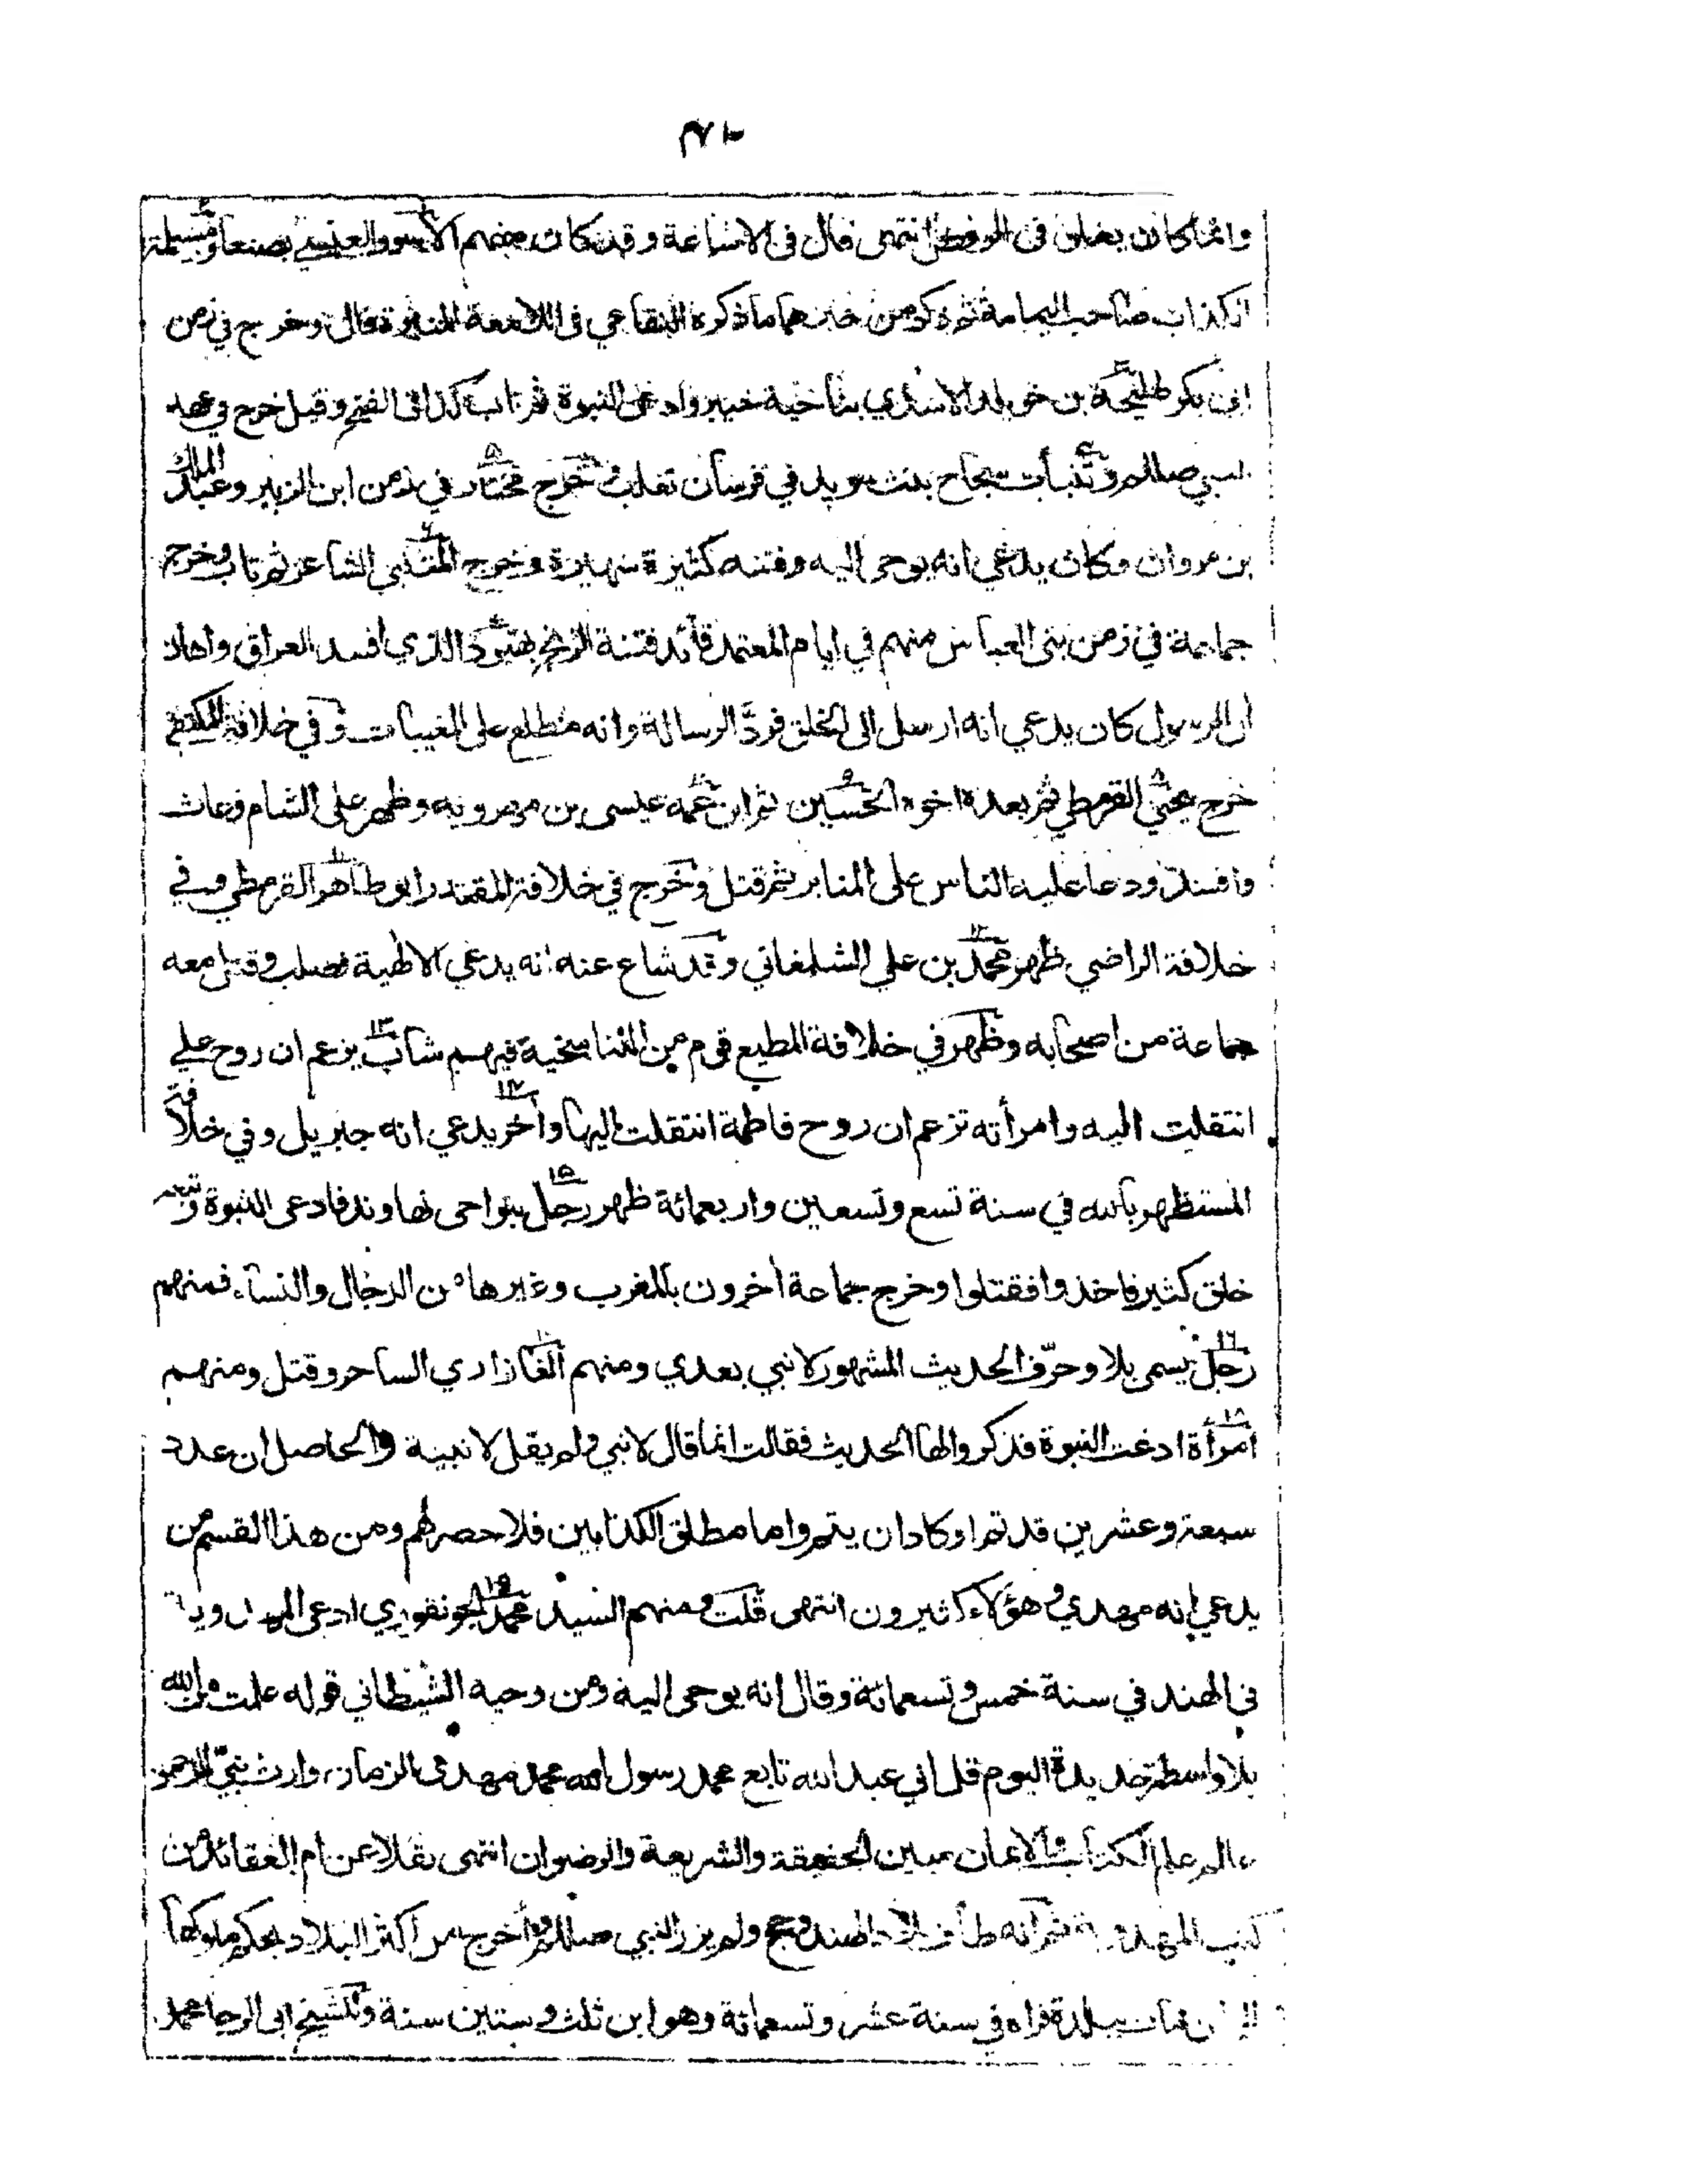 وانما كان يغلق في انتهى قال في الاشاعة وقد كان منهم الاسود العنسي بصنعا ومسيلمة
الكذاب صاحب اليمامة ثم ذكر من خبرهما ما ذكره البقاعي في قال وخرج في زمن
ابي بكر طليحة بن خويلد الاسدي بناحية خيبر وادعى النبوة ثم تاب كذا في الفتح وقيل خرج في عهد
النبي صللم وتنبأت سجاح بنت سويد في فرسان تغلب وخرج مختار في زمن ابن الزبير وعبد الملك
بن مروان وكان يدعي انه يوحى اليه وفتنه كثيرة شهيرة وخرج المتنبي الشاعر ثم تاب وخرج
جماعة في زمن بنى العباس منهم في ايام المعتمد قائد فتنة الزنج بهبود الذي افسد العراق واهان
ال الرسول كان يدعي انه ارسل الى الخلق فردّ الرسالة وانه مطلع على المغيبات وفي خلافة المكتفي
خرج يحيى القرمطي ثم بعده اخوه الحسين ثم ابن عمه عيسى بن مهرويه وظهر على الشام وعاث
وافسد ودعا عليه الناس على المنابر ثم قتل وخرج في خلافة المقتدر ابو طاهر القرمطي وفي
خلافة الراضي ظهر محمد بن علي الشلمغاني وقد شاع عنه انه يدعي الالهية فصلب وقتل معه
جماعة من اصحابه وظهر في خلافة المطيع قوم من التناسخية فيهم شاب يزعم ان روح علي
انتقلت اليه وامرأته تزعم ان روح فاطمة انتقلت اليها وآخر يدعي انه جبريل وفي خلافة
المستظهر بالله في سنة تسع وتسعين واربعمائة ظهر رجل بنواحى نهاوند فادعى النبوة وتبعه
خلق كثير فاخذوا فقتلوا وخرج جماعة أخرون بالمغرب وغيرها من الرجال والنساء فمنهم
رجل يسمى بلا وحرّف الحديث المشهور لا نبي بعدي ومنهم الغازاري الساحر وقتل ومنهم
امرأة ادعت النبوة فذكروا لها الحديث فقالت انما قال لا نبي ولم يقل لا نبية والحاصل ان عدد
سبعة وعشرين قد تم او كاد ان يتم واما مطلق الكذابين فلا حصر لهم ومن هذا القسم من
يدعي انه مهدي وهؤلاء كثيرون انتهى قلت ومنهم السيد محمد الجونفوري ادعى
في الهند في سنة خمس وتسعمائة وقال انه يوحى اليه ومن وحيه الشيطاني قوله علمت من الله
بلا واسطة جديدة اليوم قل اني عبد الله تابع محمد رسول الله محمد مهدى الزمان وارث نبيّ الرحمن
عالم علم الكتاب والايمان مبين الحقيقة والشريعة والرضوان انتهى نقلا عن ام العقائد من
كتب المهدوية ثم انه طاف بلاد الهند وحج ولم يزر النبي صللم وأخرج من اكثر البلاد بحكم ملوكها
مات ببلدة فراه في سنة عشر وتسعمائة وهو ابن ثلث وستين سنة وللشيخ ابى الرجا محمد